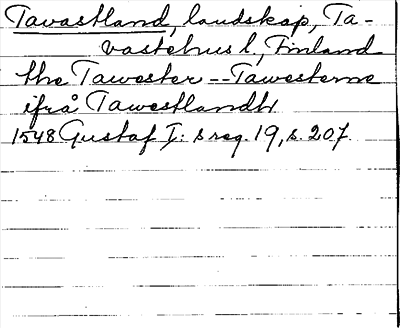 Tavastland, landskap, Ta-
vastehus l, Finland
the Tawester -- Tawesterne
ifrå Tawestlandh
1548 Gustaf I: s reg. 19, s. 207.